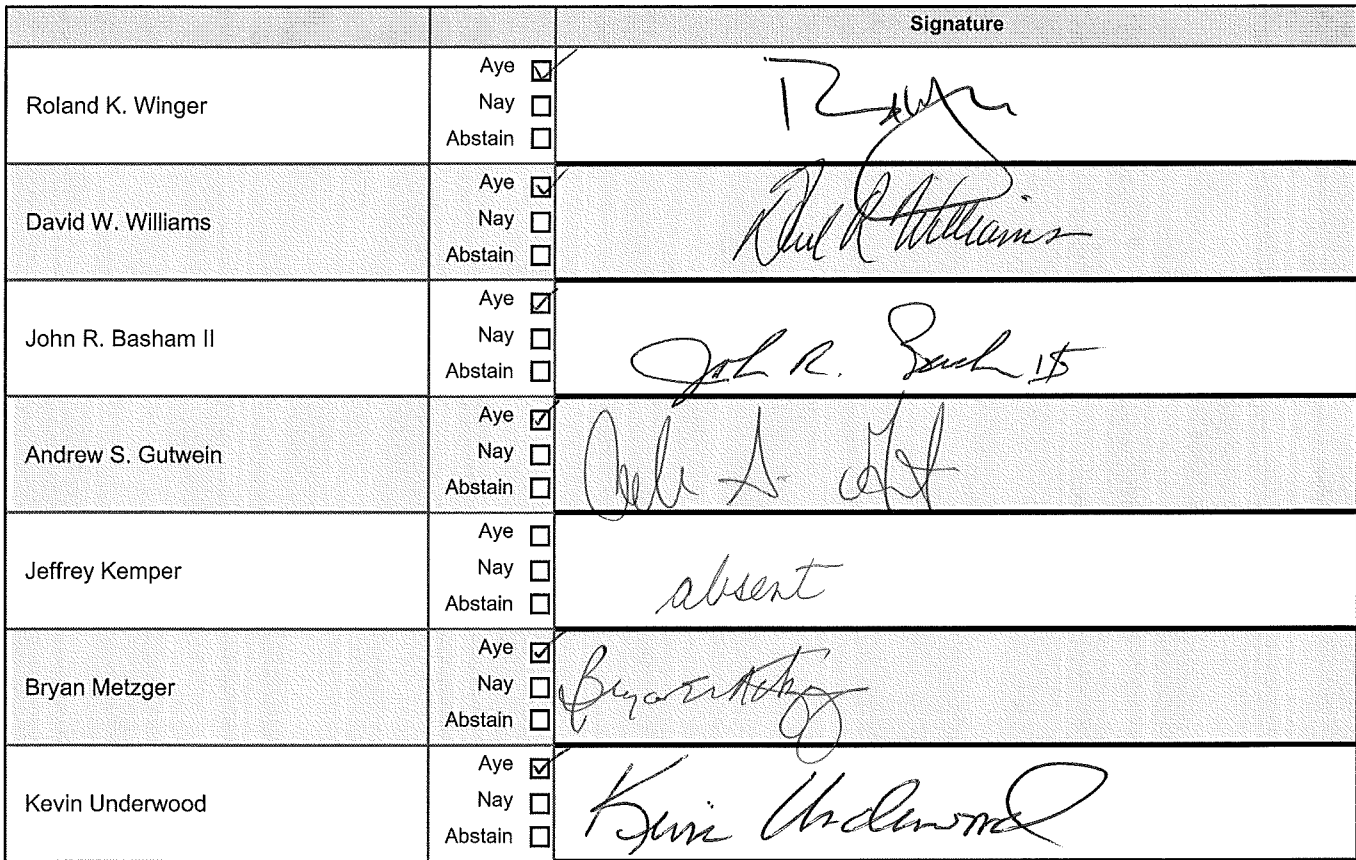 Signature
Roland K. Winger
Aye
Nay
Abstain
David W. Williams
Aye
Nay
Abstain
Williams
John R. Basham II
Aye
Nay
Abstain
John R.
Andrew S. Gutwein
Aye
Nay
Abstain
Jeffrey Kemper
Aye
Nay
Abstain
absent
Bryan Metzger
Aye
Nay
Abstain
Kevin Underwood
Aye
Nay
Abstain
Kevin Underwood